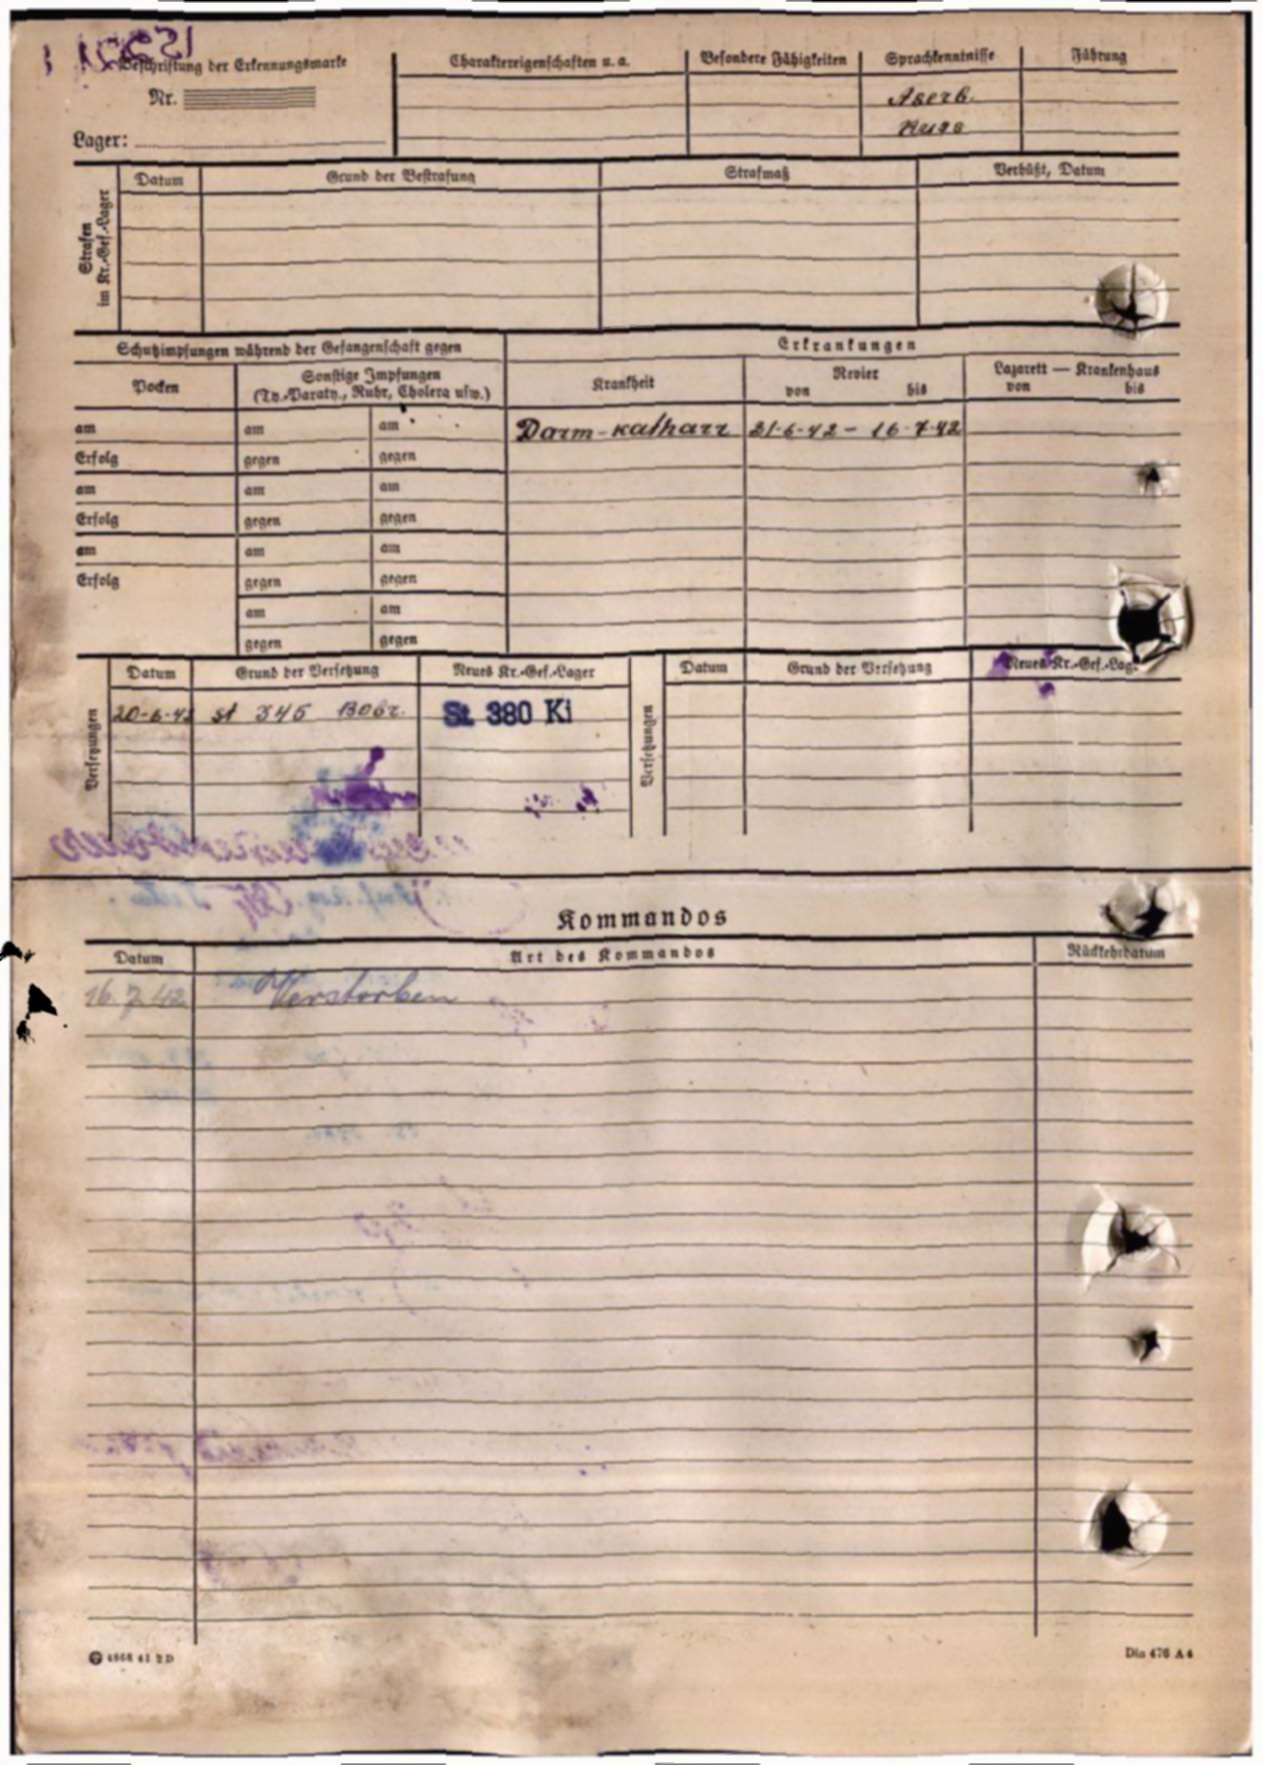 Beschriftung der Erkennungsmarke
Nr.
Lager:
Charaktereigenschaften u. a.
Besondere Fähigkeiten
Sprachkenntnisse
Führung
Aserb.
Russ
Strafen im Kr.-Gef.-Lager
Datum
Grund der Bestrafung
Strafmaß
Verbüßt, Datum
Schutzimpfungen während der Gefangenschaft gegen
Erkrankungen
Pocken
Sonstige Impfungen
(Ty.-Paraty., Ruhr, Cholera usw.)
Krankheit
Revier
von bis
Lazarett — Krankenhaus
von bis
am am am
Darm-katharr 21-6-42 - 16-7-42
Erfolg gegen gegen
am am am
Erfolg gegen gegen
am am am
Erfolg gegen gegen
am am
gegen gegen
Versetzungen
Datum Grund der Versetzung Neues Kr.-Gef.-Lager
20-6-42 st 345 Bobr. St 380 Ki
Versetzungen
Datum Grund der Versetzung Neues Kr.-Gef.-Lag.
Kommandos
Datum Art des Kommandos Rückkehrdatum
16.7.42 Verstorben
4868 41 2 D
Din 476 A 4